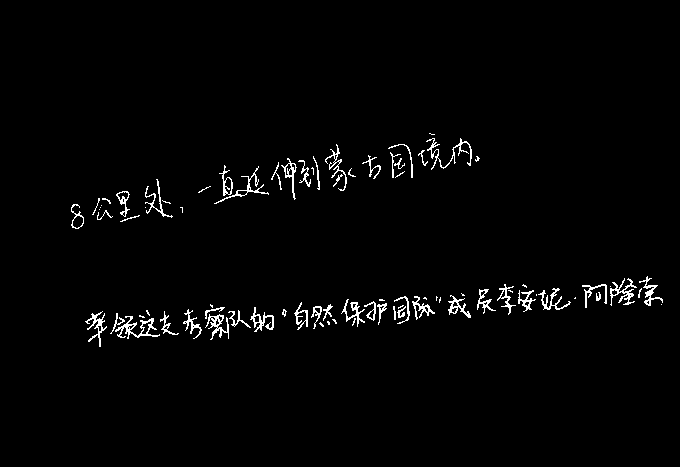 8公里处,一直延伸到蒙古国境内。
率领这支考察队的“自然保护团队”成员李安妮·阿隆索